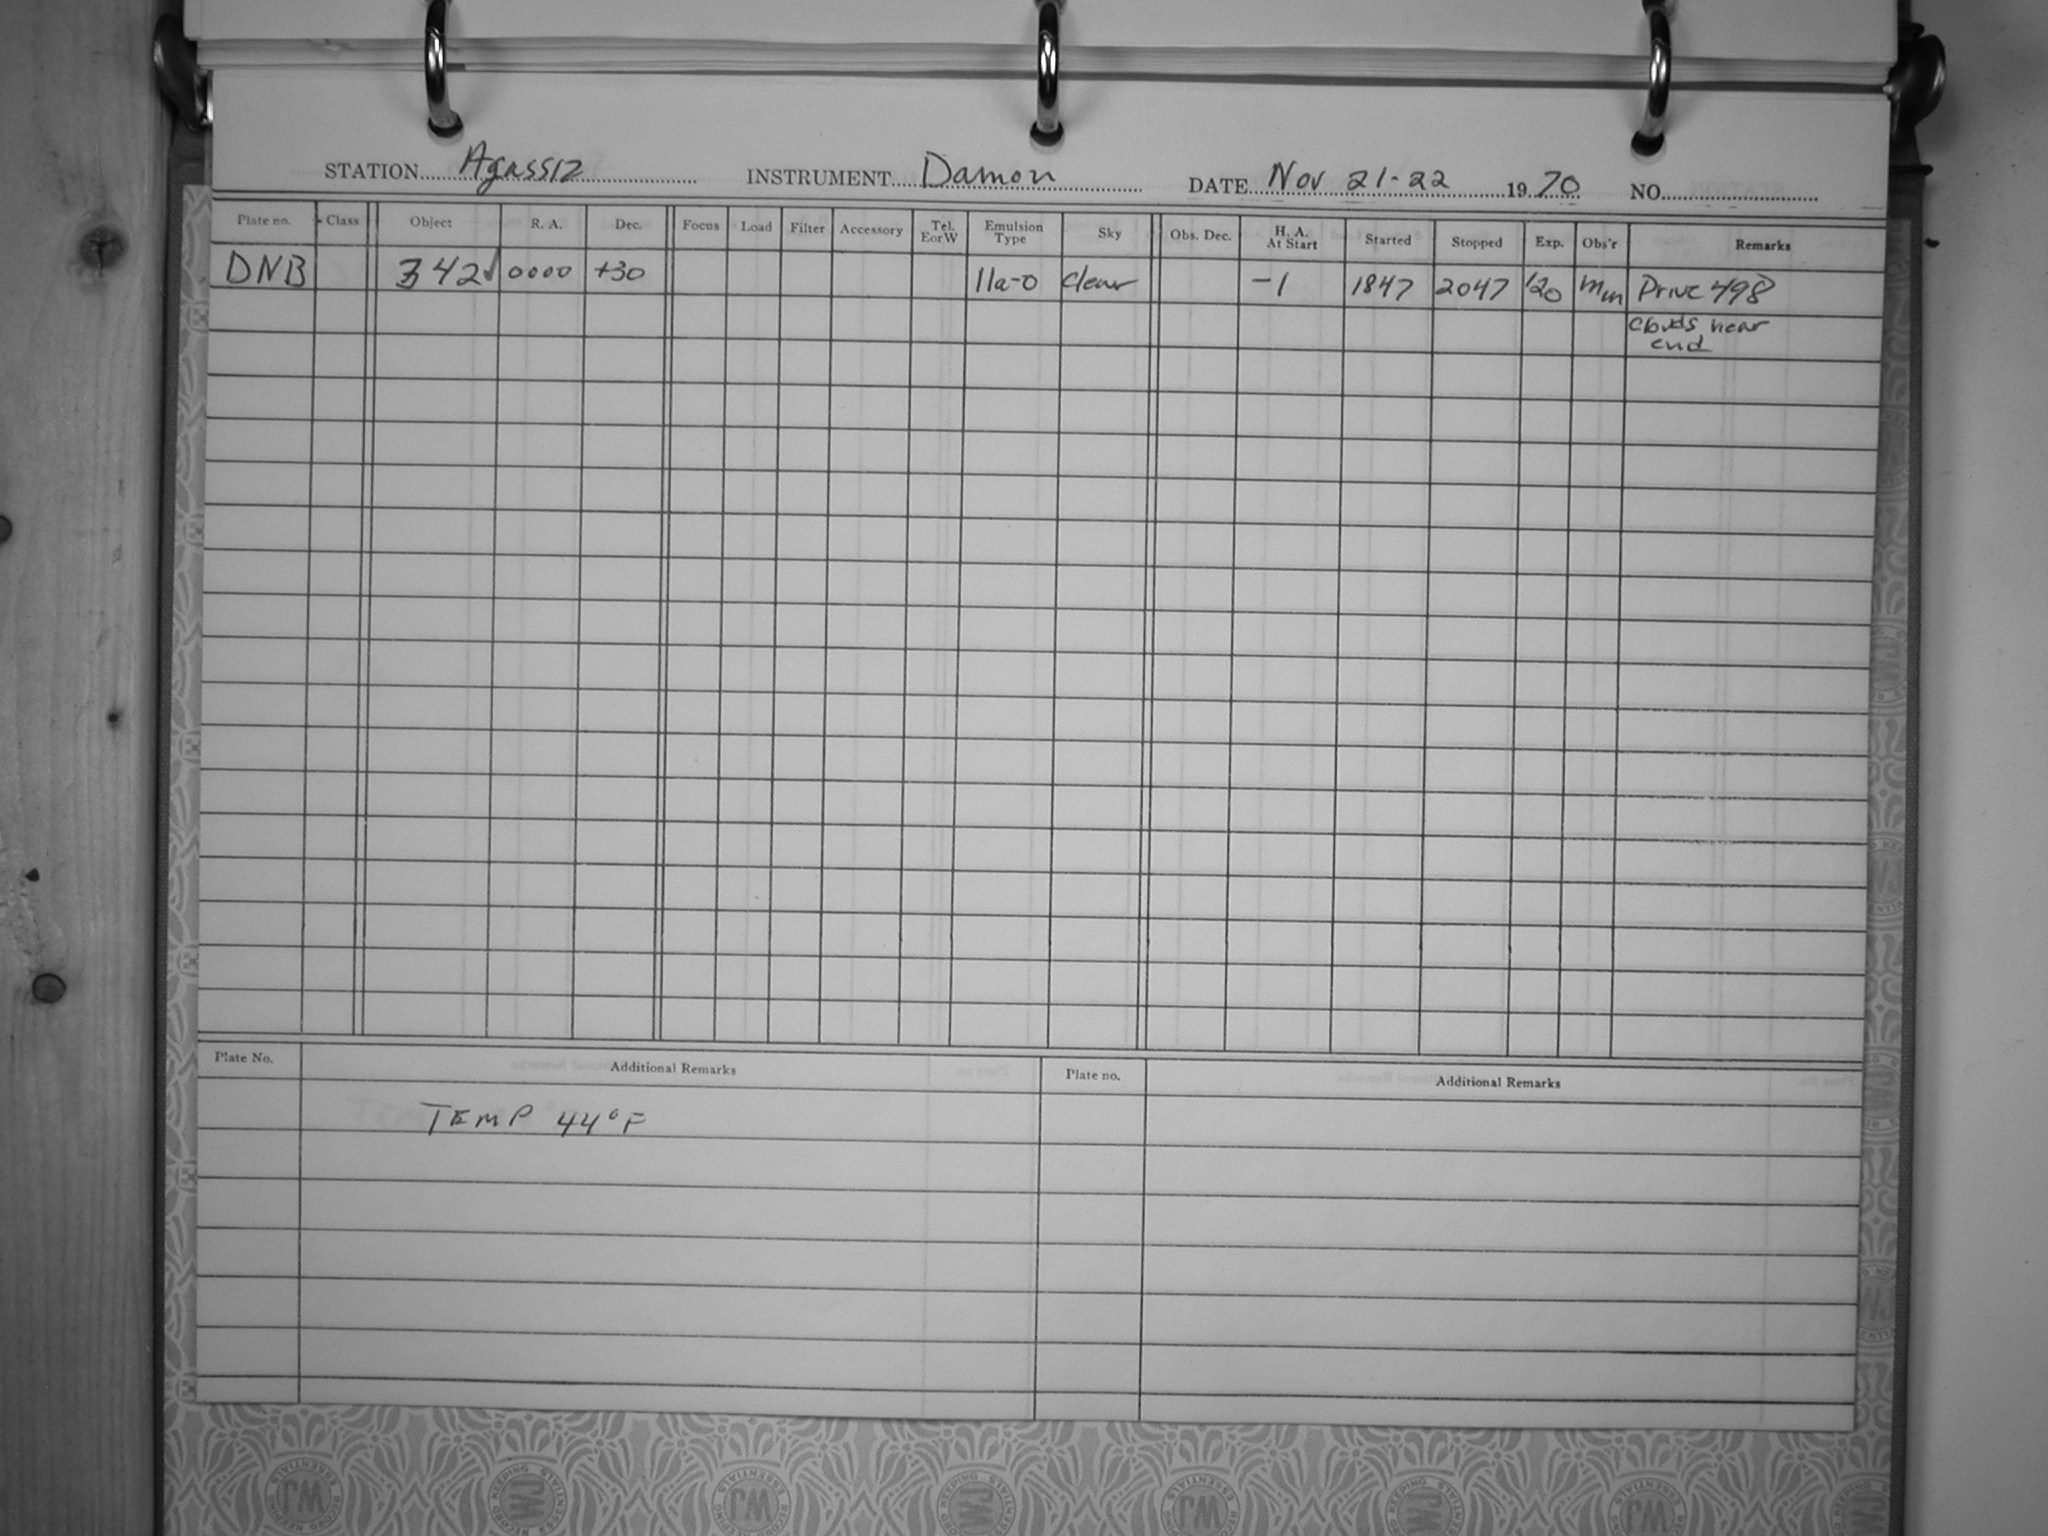 STATION Agassiz INSTRUMENT Damon DATE Nov 21-22 1970 NO.
Plate no. Class Object R. A. Dec. Focus Load Filter Accessory Tel. E or W Emulsion Type Sky Obs. Dec. H. A. At Start Started Stopped Exp. Obs'r Remarks
DNB 342 0000 +30 11a-0 clear -1 1847 2047 120 Drive 498
clouds near
end
Plate No. Additional Remarks Plate no. Additional Remarks
TEMP 44°F